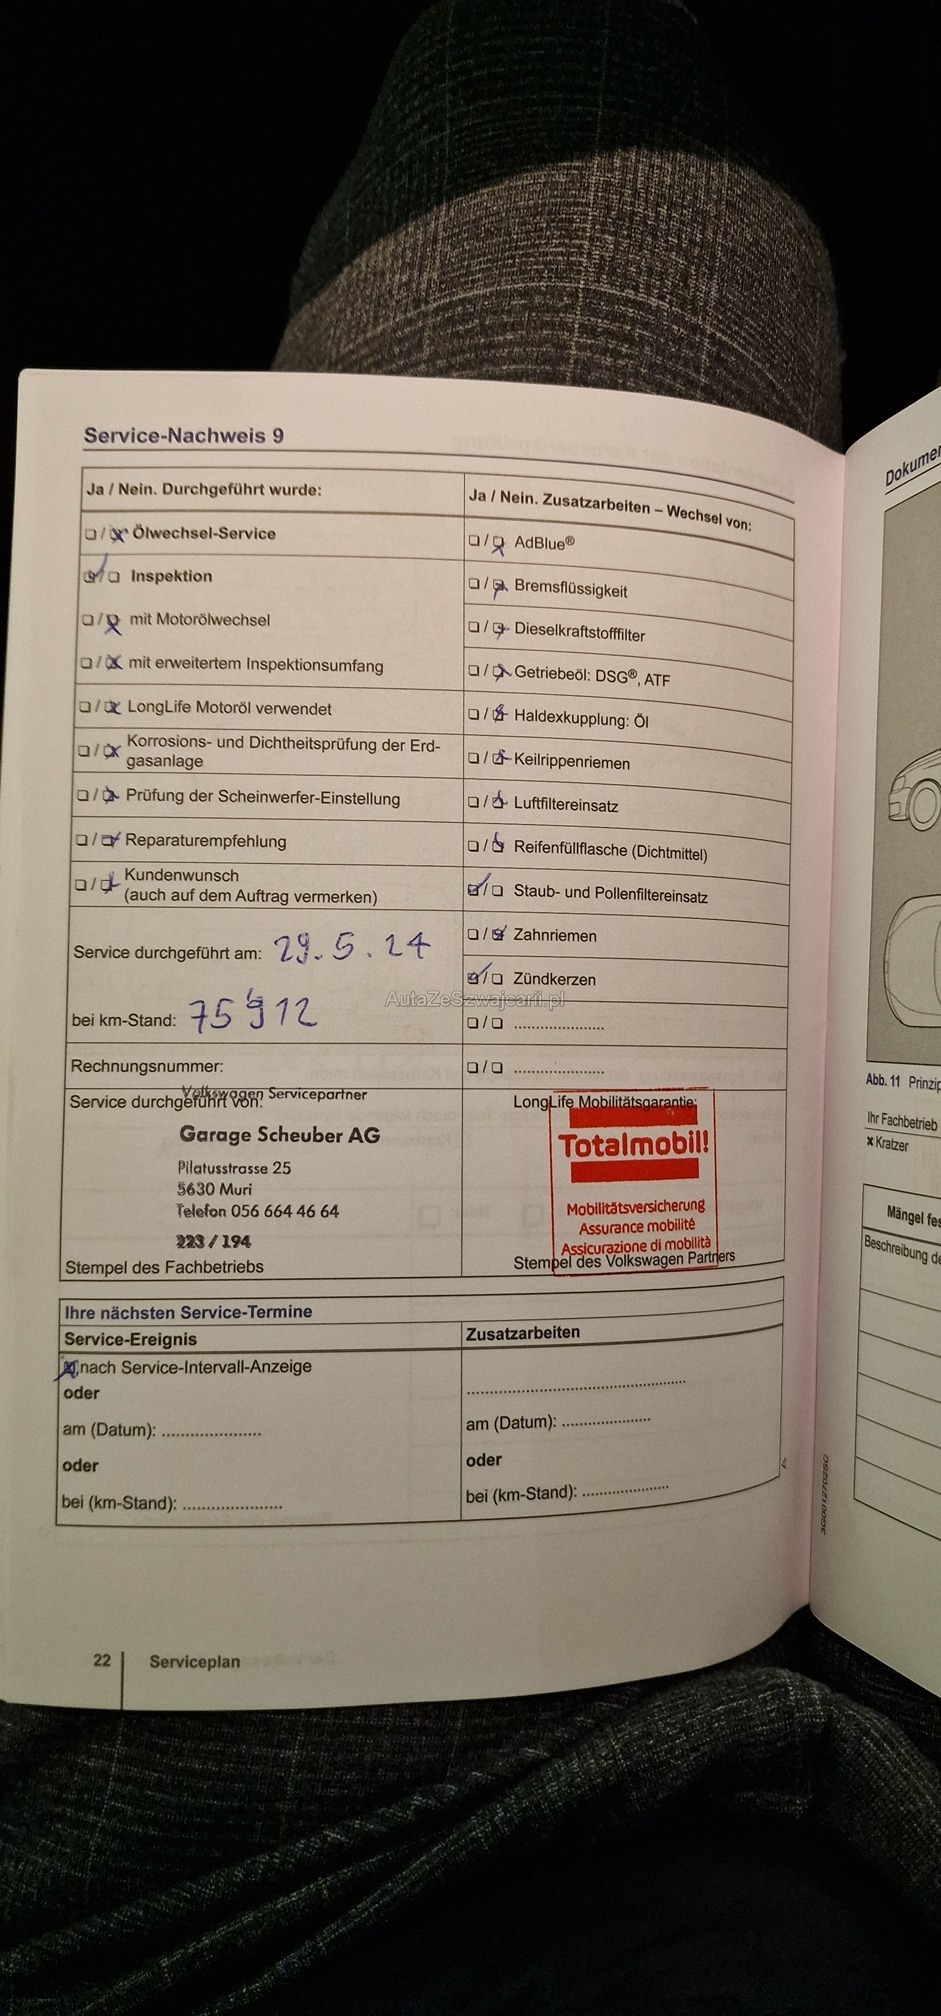 Service-Nachweis 9
Ja / Nein. Durchgeführt wurde:
❑ / ❑ Ölwechsel-Service
❑ / ❑ Inspektion
❑ / ❑ mit Motorölwechsel
❑ / ❑ mit erweitertem Inspektionsumfang
❑ / ❑ LongLife Motoröl verwendet
❑ / ❑ Korrosions- und Dichtheitsprüfung der Erd-
gasanlage
❑ / ❑ Prüfung der Scheinwerfer-Einstellung
❑ / ❑ Reparaturempfehlung
❑ / ❑ Kundenwunsch
(auch auf dem Auftrag vermerken)
Service durchgeführt am: 29.5.24
bei km-Stand: 75912
Rechnungsnummer:
Ja / Nein. Zusatzarbeiten – Wechsel von:
❑ / ❑ AdBlue®
❑ / ❑ Bremsflüssigkeit
❑ / ❑ Dieselkraftstofffilter
❑ / ❑ Getriebeöl: DSG®, ATF
❑ / ❑ Haldexkupplung: Öl
❑ / ❑ Keilrippenriemen
❑ / ❑ Luftfiltereinsatz
❑ / ❑ Reifenfüllflasche (Dichtmittel)
❑ / ❑ Staub- und Pollenfiltereinsatz
❑ / ❑ Zahnriemen
❑ / ❑ Zündkerzen
❑ / ❑ ......................
❑ / ❑ ......................
AutaZeSzwajcarii.pl
Service durchgeführt von:
Volkswagen Servicepartner
Garage Scheuber AG
Pilatusstrasse 25
5630 Muri
Telefon 056 664 46 64
223 / 194
Stempel des Fachbetriebs
LongLife Mobilitätsgarantie:
Totalmobil!
Mobilitätsversicherung
Assurance mobilité
Assicurazione di mobilità
Stempel des Volkswagen Partners
Ihre nächsten Service-Termine
Service-Ereignis
nach Service-Intervall-Anzeige
oder
am (Datum): ......................
oder
bei (km-Stand): ......................
Zusatzarbeiten
......................
am (Datum): ......................
oder
bei (km-Stand): ......................
3G0012702SC
22 Serviceplan
Dokumen
Abb. 11 Prinzip
Ihr Fachbetrieb
× Kratzer
Mängel fes
Beschreibung de